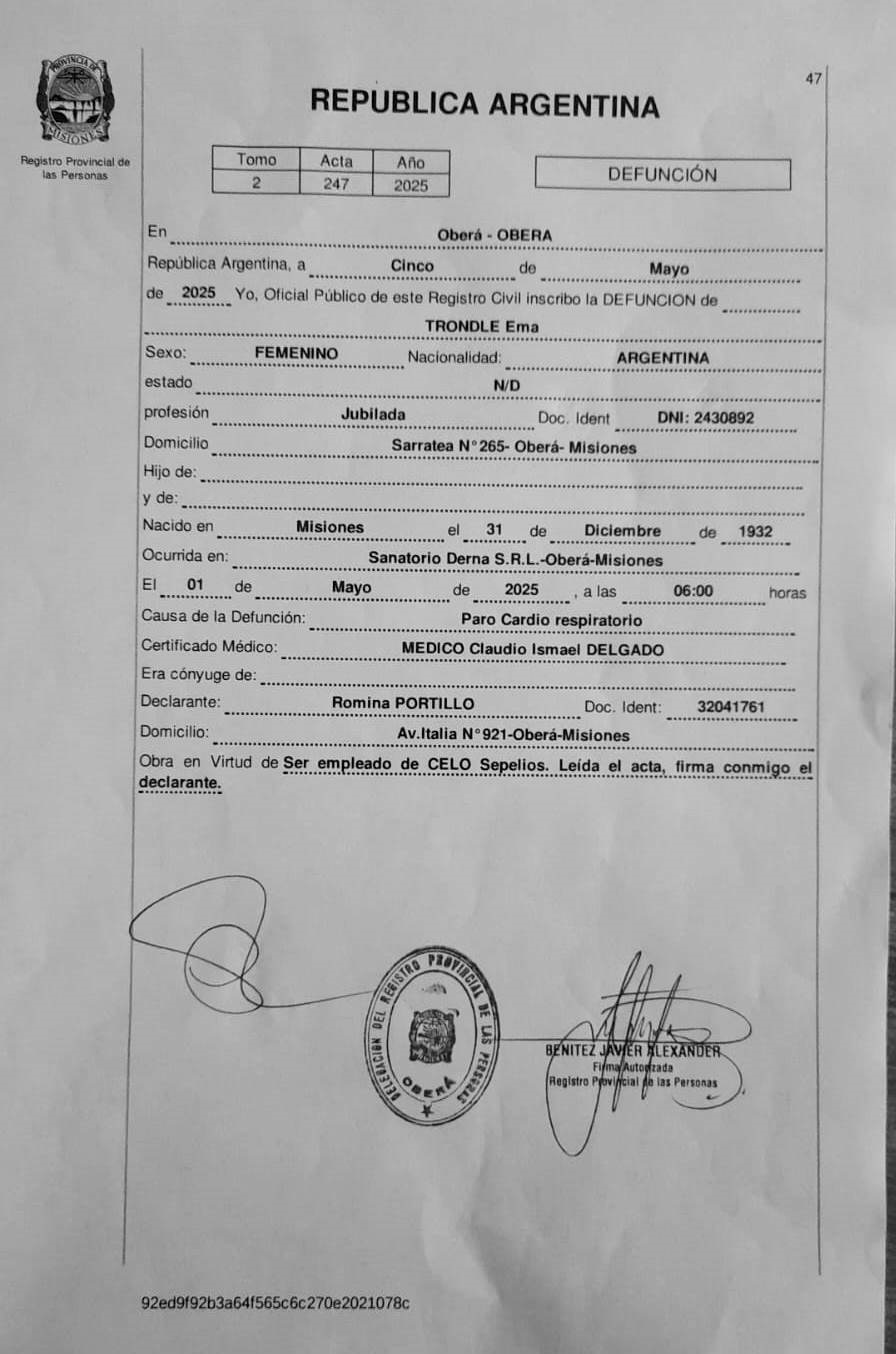 47
PROVINCIA DE
MISIONES
Registro Provincial de
las Personas
REPUBLICA ARGENTINA
Tomo Acta Año
2 247 2025
DEFUNCIÓN
En Oberá - OBERA
República Argentina, a Cinco de Mayo
de 2025 Yo, Oficial Público de este Registro Civil inscribo la DEFUNCION de
TRONDLE Ema
Sexo: FEMENINO Nacionalidad: ARGENTINA
estado N/D
profesión Jubilada Doc. Ident DNI: 2430892
Domicilio Sarratea N°265- Oberá- Misiones
Hijo de:
y de:
Nacido en Misiones el 31 de Diciembre de 1932
Ocurrida en: Sanatorio Derna S.R.L.-Oberá-Misiones
El 01 de Mayo de 2025 , a las 06:00 horas
Causa de la Defunción: Paro Cardio respiratorio
Certificado Médico: MEDICO Claudio Ismael DELGADO
Era cónyuge de:
Declarante: Romina PORTILLO Doc. Ident: 32041761
Domicilio: Av.Italia N°921-Oberá-Misiones
Obra en Virtud de Ser empleado de CELO Sepelios. Leída el acta, firma conmigo el
declarante.
DELEGACION DEL REGISTRO PROVINCIAL DE LAS PERSONAS
OBERÁ
BENITEZ JAVIER ALEXANDER
Firma Autorizada
Registro Provincial de las Personas
92ed9f92b3a64f565c6c270e2021078c